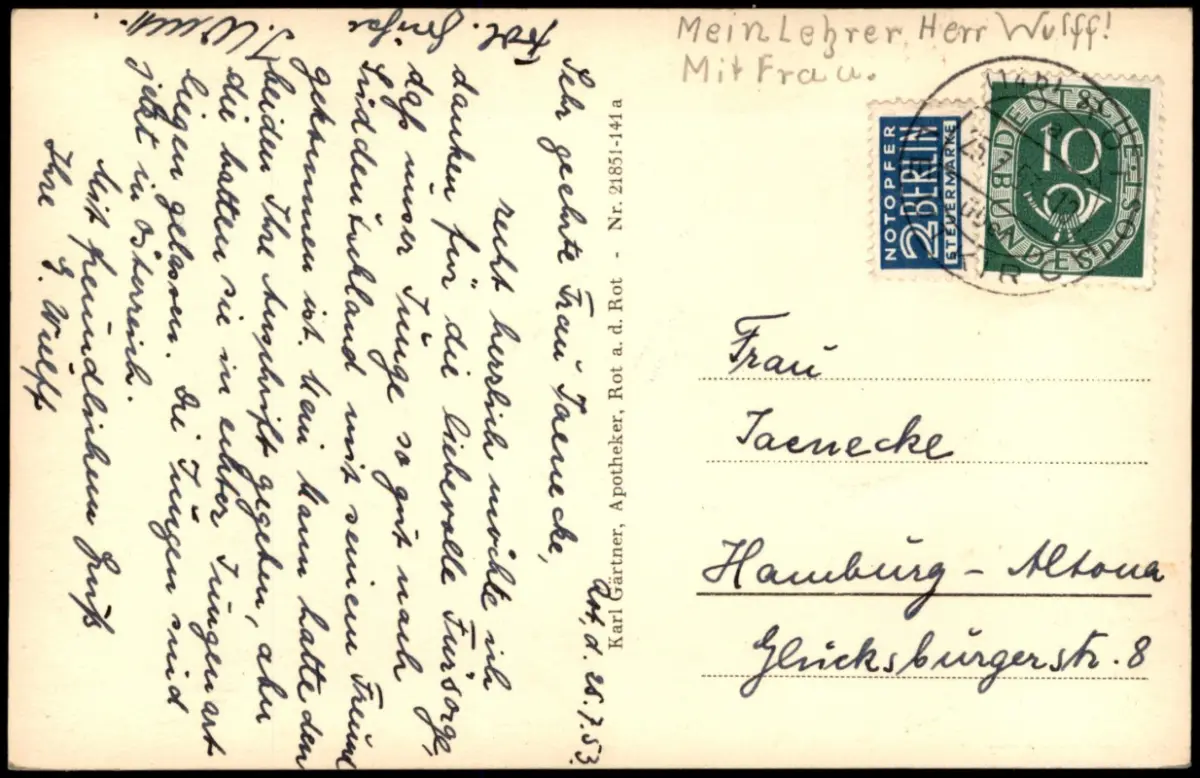 Mein Lehrer, Herr Wulff!
Mit Frau.
Rot, d. 25.7.53.
Sehr geehrte Frau Jaenecke,
recht herzlich möchte ich
danken für die liebevolle Fürsorge,
daß unser Junge so gut nach
Süddeutschland mit seinem Freund
gekommen ist. Kai kam hatte den
beiden Ihre Anschrift gegeben, aber
die hatten sie in echter Jungenart
liegen gelassen. Die Jungen sind
jetzt in Österreich.
Mit freundlichem Gruß
Ihre G. Wulff
Karl Gärtner, Apotheker, Rot a. d. Rot - Nr. 21851-141a
NOTOPFER
2 BERLIN
STEUERMARKE
DEUTSCHE BUNDESPOST
10
Frau
Jaenecke
Hamburg - Altona
Glücksburgerstr. 8